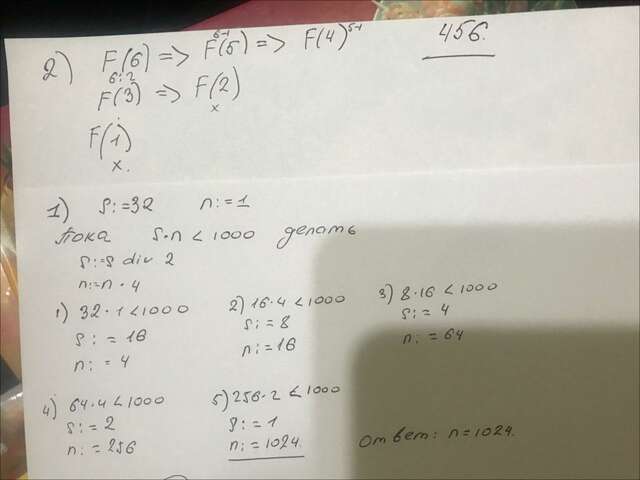 2) F(6) => F(5) => F(4) 456.
6-1 5-1
6:2
F(3) => F(2)
x
F(1)
x.
1) S:=32 n:=1
Пока S·n < 1000 делать
S:=S div 2
n:=n · 4
1) 32·1<1000
S:=16
n:=4
2) 16·4<1000
S:=8
n:=16
3) 8·16<1000
S:=4
n:=64
4) 64·4<1000
S:=2
n:=256
5) 256·2<1000
S:=1
n:=1024.
Ответ: n=1024.